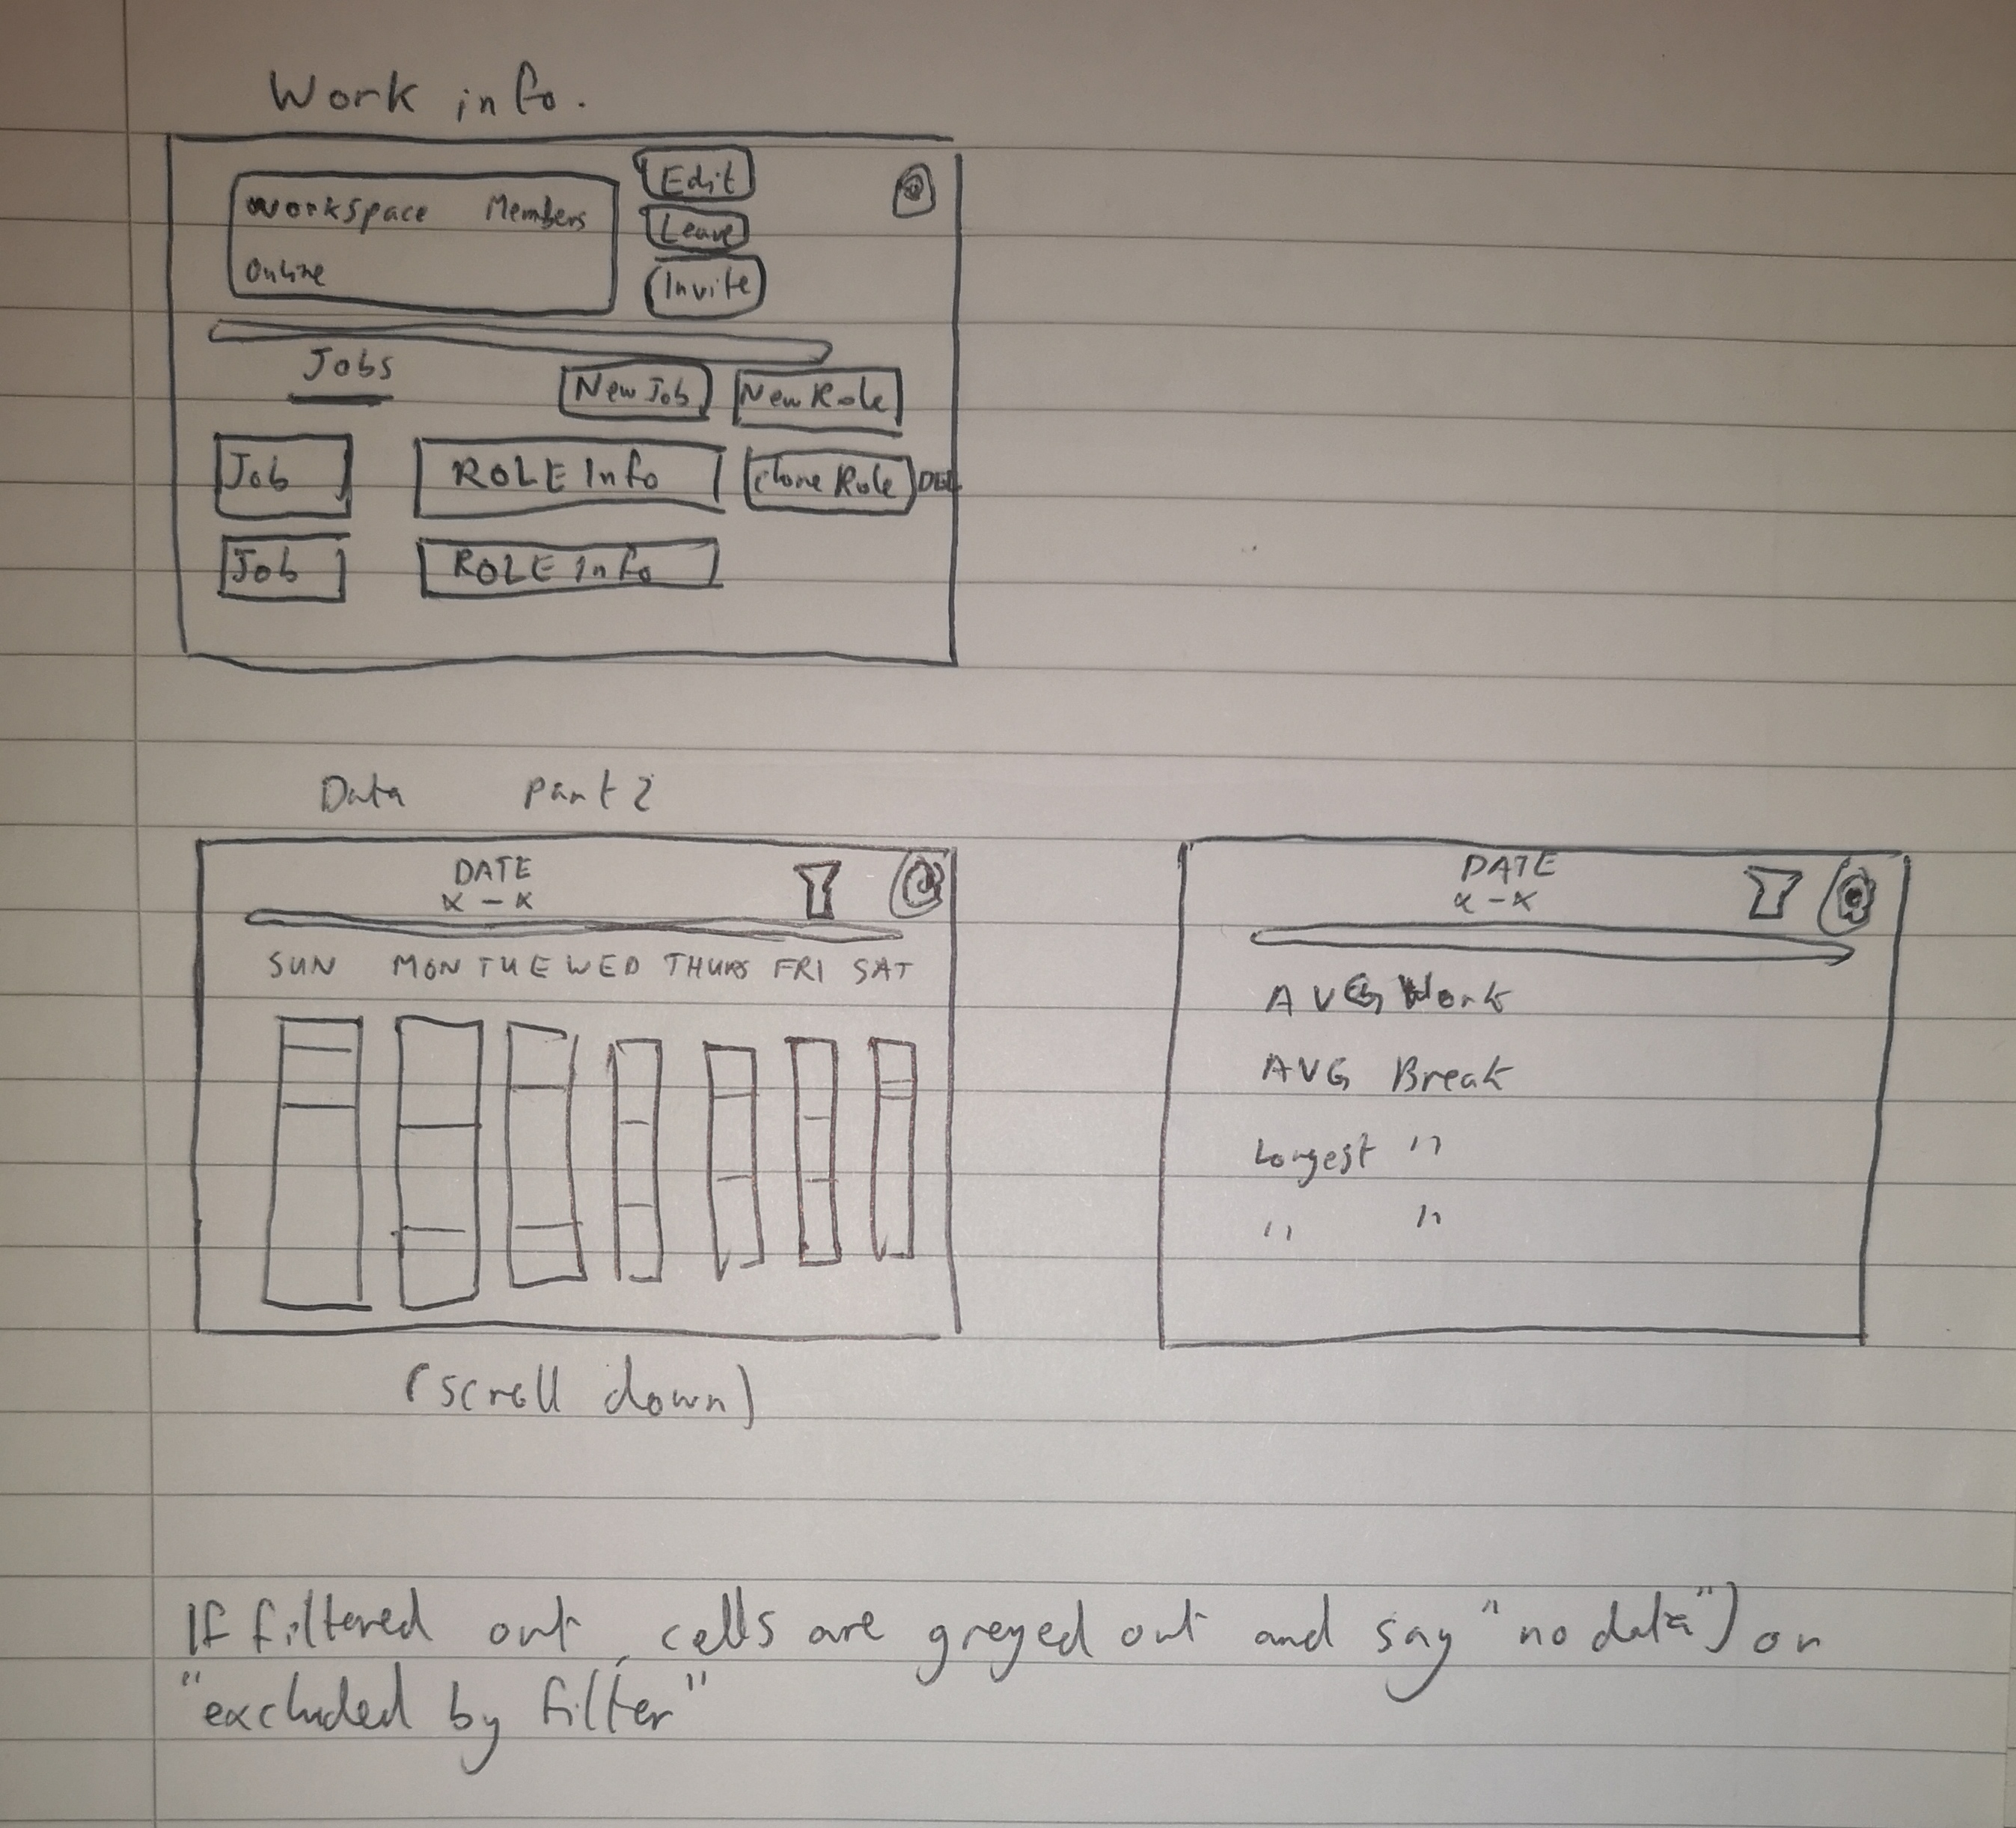 Work info.
Workspace Members
Online
Edit
Leave
Invite
Jobs
New Job
New Role
Job
ROLE Info
Clone Role
DEL
Job
ROLE Info
Data part 2
DATE
x - x
SUN MON TUE WED THURS FRI SAT
(scroll down)
DATE
x - x
AVG Work
AVG Break
Longest "
" "
If filtered out, cells are greyed out and say "no data") or
"excluded by filter"